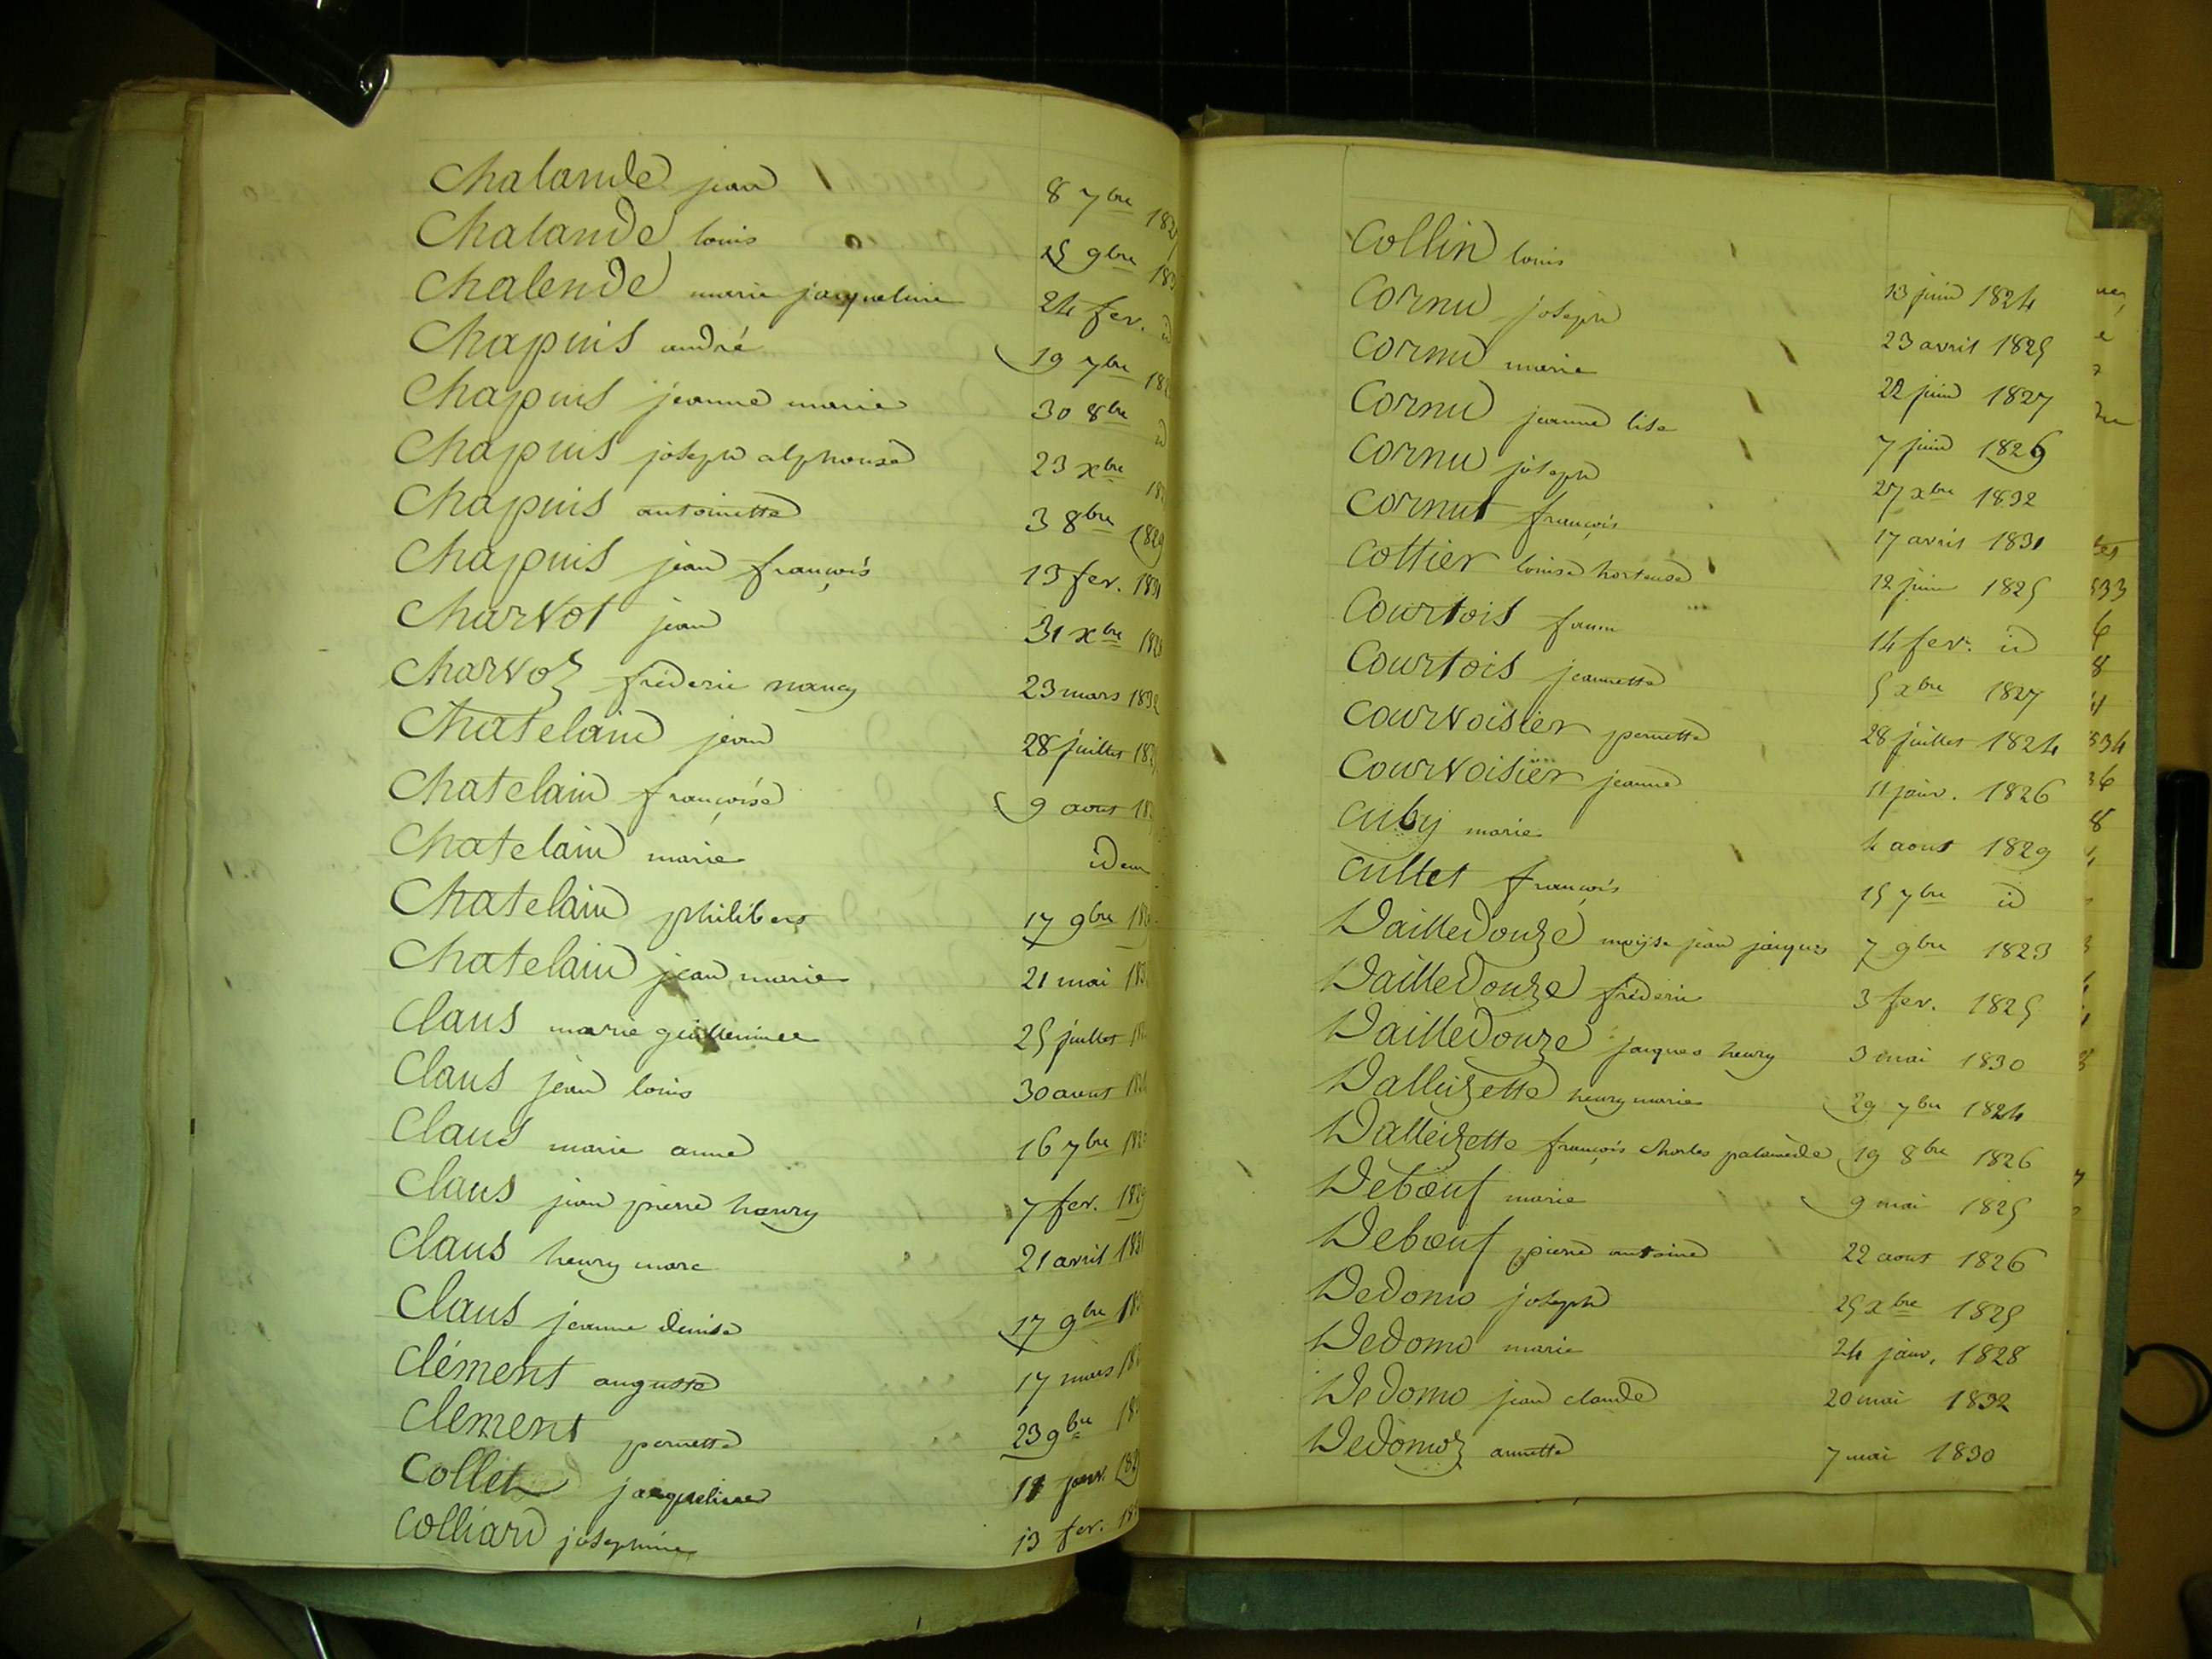 Chalande jean 8 7bre
Chalande louis 25 9bre
Chalende marie jaqueline 24 fev. id
Chapuis andré 19 7bre
Chapuis jeanne marie 30 8bre id
Chapuis joseph alphonse 23 xbre
Chapuis antoinette 3 8bre 1829
Chapuis jean françois 13 fev.
Charvot jean 31 xbre
Charvoz fréderic nancy 23 mars 1832
Chatelain jean 28 juillet
Chatelain françoise 9 aout
Chatelain marie idem
Chatelain philibert 17 9bre
Chatelain jean marie 21 mai
Claus marie guillemine 25 juillet
Claus jean louis 30 aout
Claus marie anne 16 7bre
Claus jean pierre henry 7 fev. 1829
Claus henry marc 21 avril
Claus jeanne denise 17 9bre
Clément auguste 17 mars
Clement pernette 23 9bre
Collet jaqueline 11 janv.
Colliard josephine 13 fev.
Collin louis 13 juin 1824
Cornu joseph 23 avril 1825
Cornu marie 22 juin 1827
Cornu jeanne lise 7 juin
Cornu joseph 27 xbre 1832
Cornut françois 17 avril 1831
Cottier louise hortense 12 juin 1825
Courtois 14 fev. id
Courtois jeannette 5 xbre 1827
Courvoisier pernette 28 juillet 1824
Courvoisier jeanne 11 janv. 1826
Cuby marie 4 aout 1829
Cullet françois 15 7bre id
Dailledouze moÿse jean jaques 7 9bre 1823
Dailledouze fréderic 3 fev. 1825
Dailledouze jaques henry 3 mai 1830
Dalleizette henry marie 29 7bre 1824
Dalleizette françois charles palamède 19 8bre 1826
Debœuf marie 9 mai 1825
Debœuf pierre antoine 22 aout 1826
Dedomo joseph 25 xbre 1825
Dedomo marie 24 janv. 1828
Dedomo jean claude 20 mai 1832
Dedomoz annette 7 mai 1830